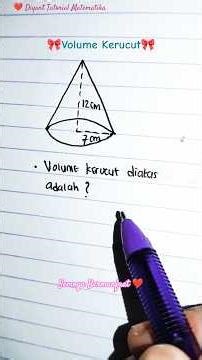 ❤️ Dapont Tutorial Matematika
🎀Volume Kerucut🎀
12 cm
7 cm
• Volume kerucut diatas
adalah ?
Semoga Bermanfaat ❤️